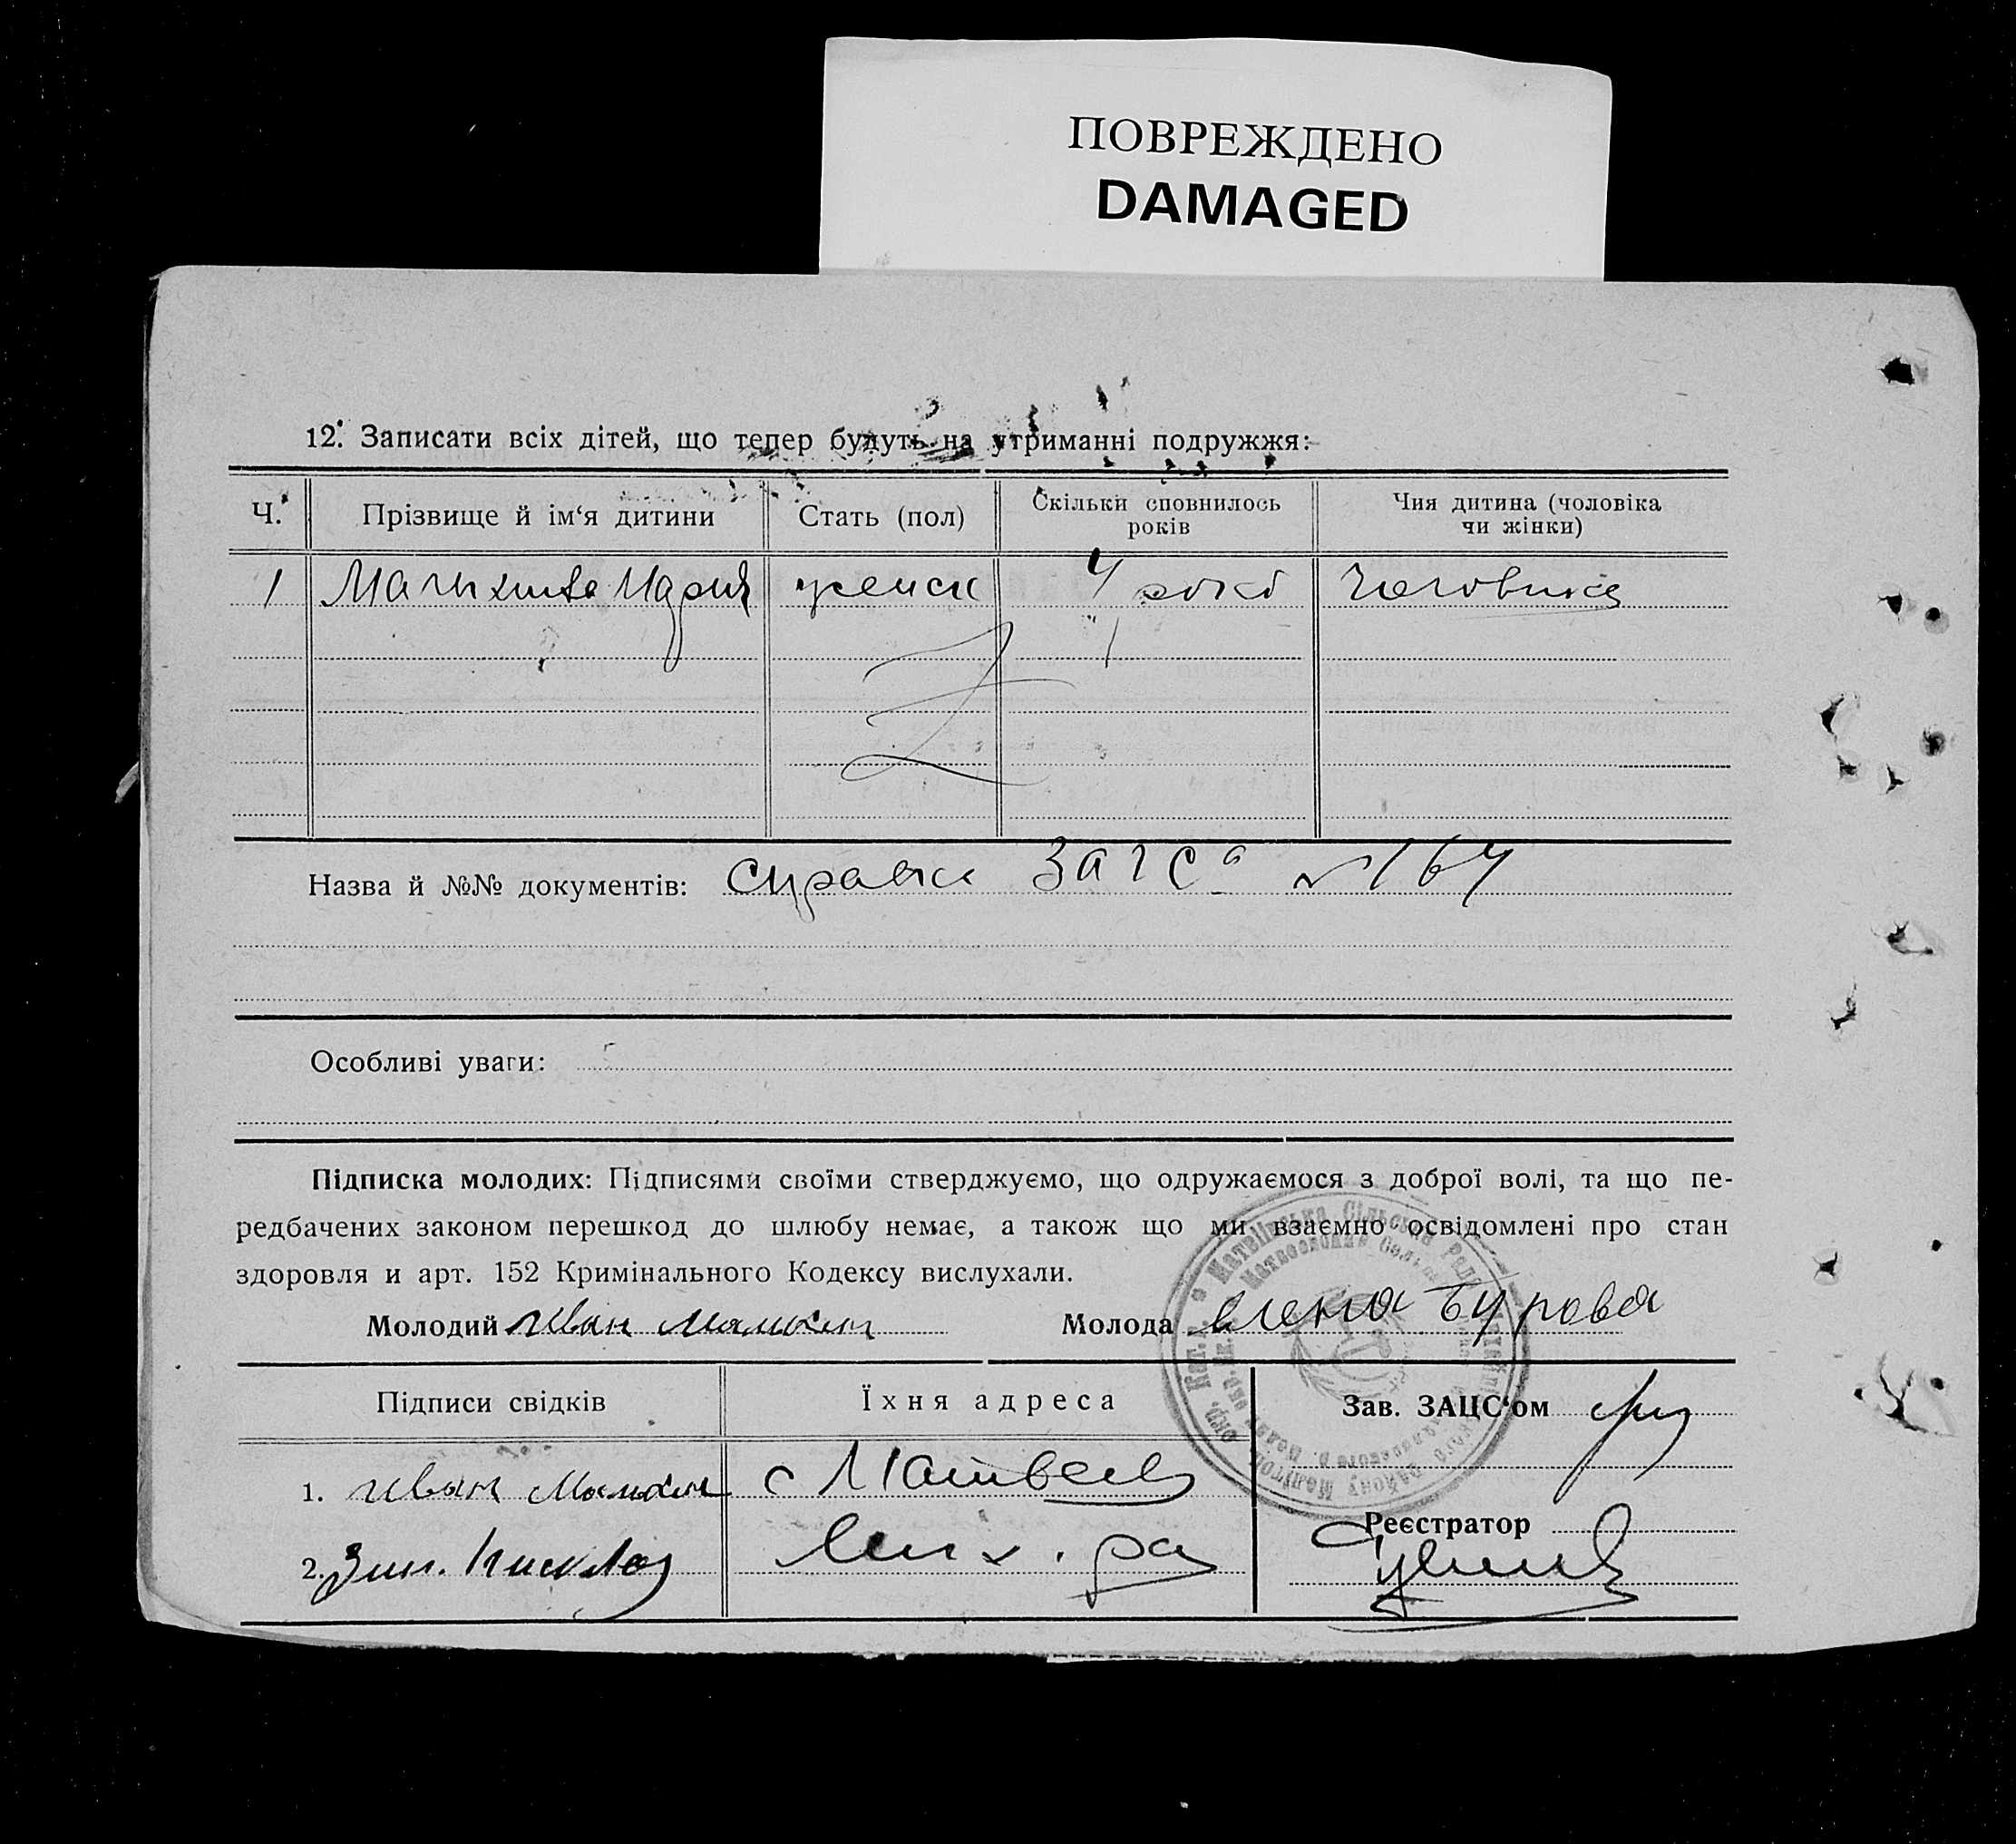 ПОВРЕЖДЕНО
DAMAGED
12. Записати всіх дітей, що тепер будуть на утриманні подружжя:
Ч. Прізвище й ім‘я дитини Стать (пол) Скільки сповнилось років Чия дитина (чоловіка чи жінки)
1 Мария женск 4 роки Чоловика
Назва й №№ документів: справка ЗАГСа № 164
Особливі уваги:
Підписка молодих: Підписями своїми стверджуємо, що одружаємося з доброї волі, та що пе-
редбачених законом перешкод до шлюбу немає, а також що ми взаємно освідомлені про стан
здоровля и арт. 152 Кримінального Кодексу вислухали.
Молодий Иван Молода Елена Бурова
Підписи свідків Їхня адреса Зав. ЗАЦС‘ом
1. Иван с Матвеев
2. Зин. Реєстратор
Матвіївська Сільська Рада